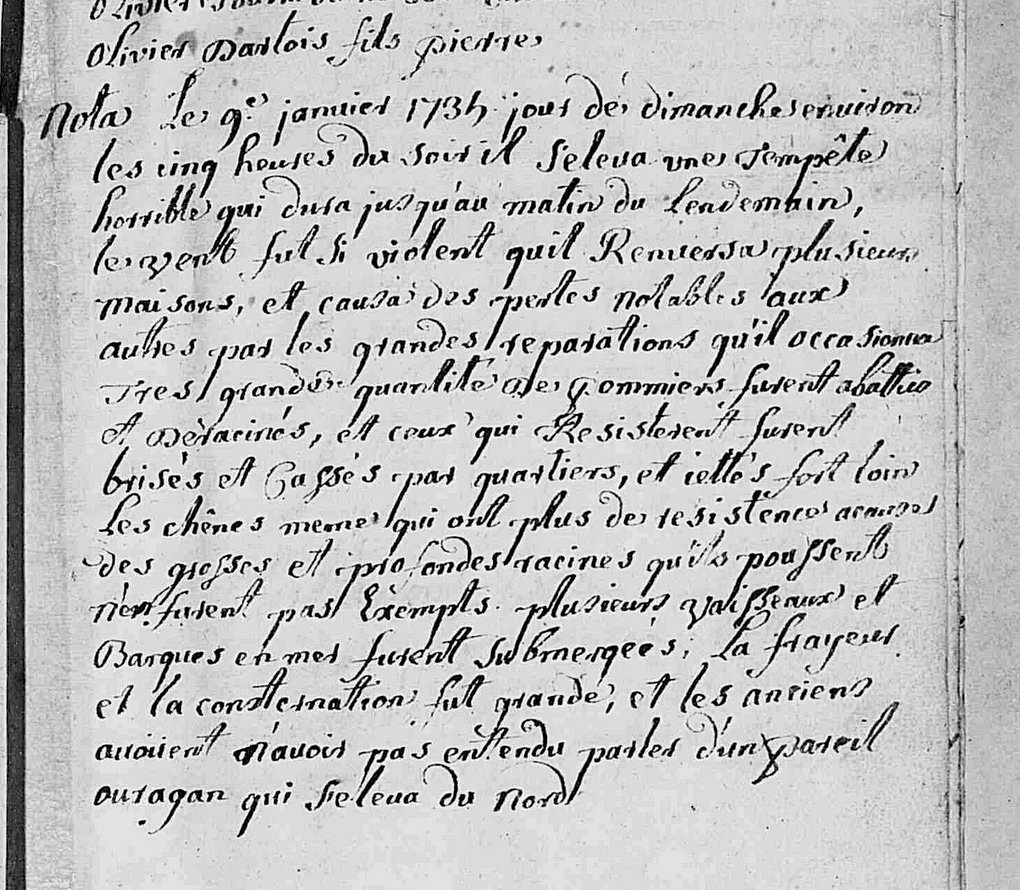 Olivier
Olivier Dartois fils pierre
Nota Le 9e janvier 1735 jour de dimanche environ
les cinq heures du soir il s'eleva une Tempête
horrible qui dura jusqu'au matin du Lendemain,
le vent fut si violent quil Renversa plusieurs
maisons, et causa des pertes notables aux
autres par les grandes reparations qu'il occasionna
Tres grande quantité de pommiers furent abattus
et Déracinés, et ceux qui Resisterent furent
brisés et Cassés par quartiers, et iettés fort loin
Les chênes meme qui ont plus de resistence acause
des grosses et profondes racines qu'ils poussent
n'en furent pas Exempts. plusieurs vaisseaux et
Barques en mer furent submergées; La frayeur
et la consternation fut grande, et les anciens
avoüent n'avoir pas entendu parler d'un pareil
ouragan qui s'eleva du Nord